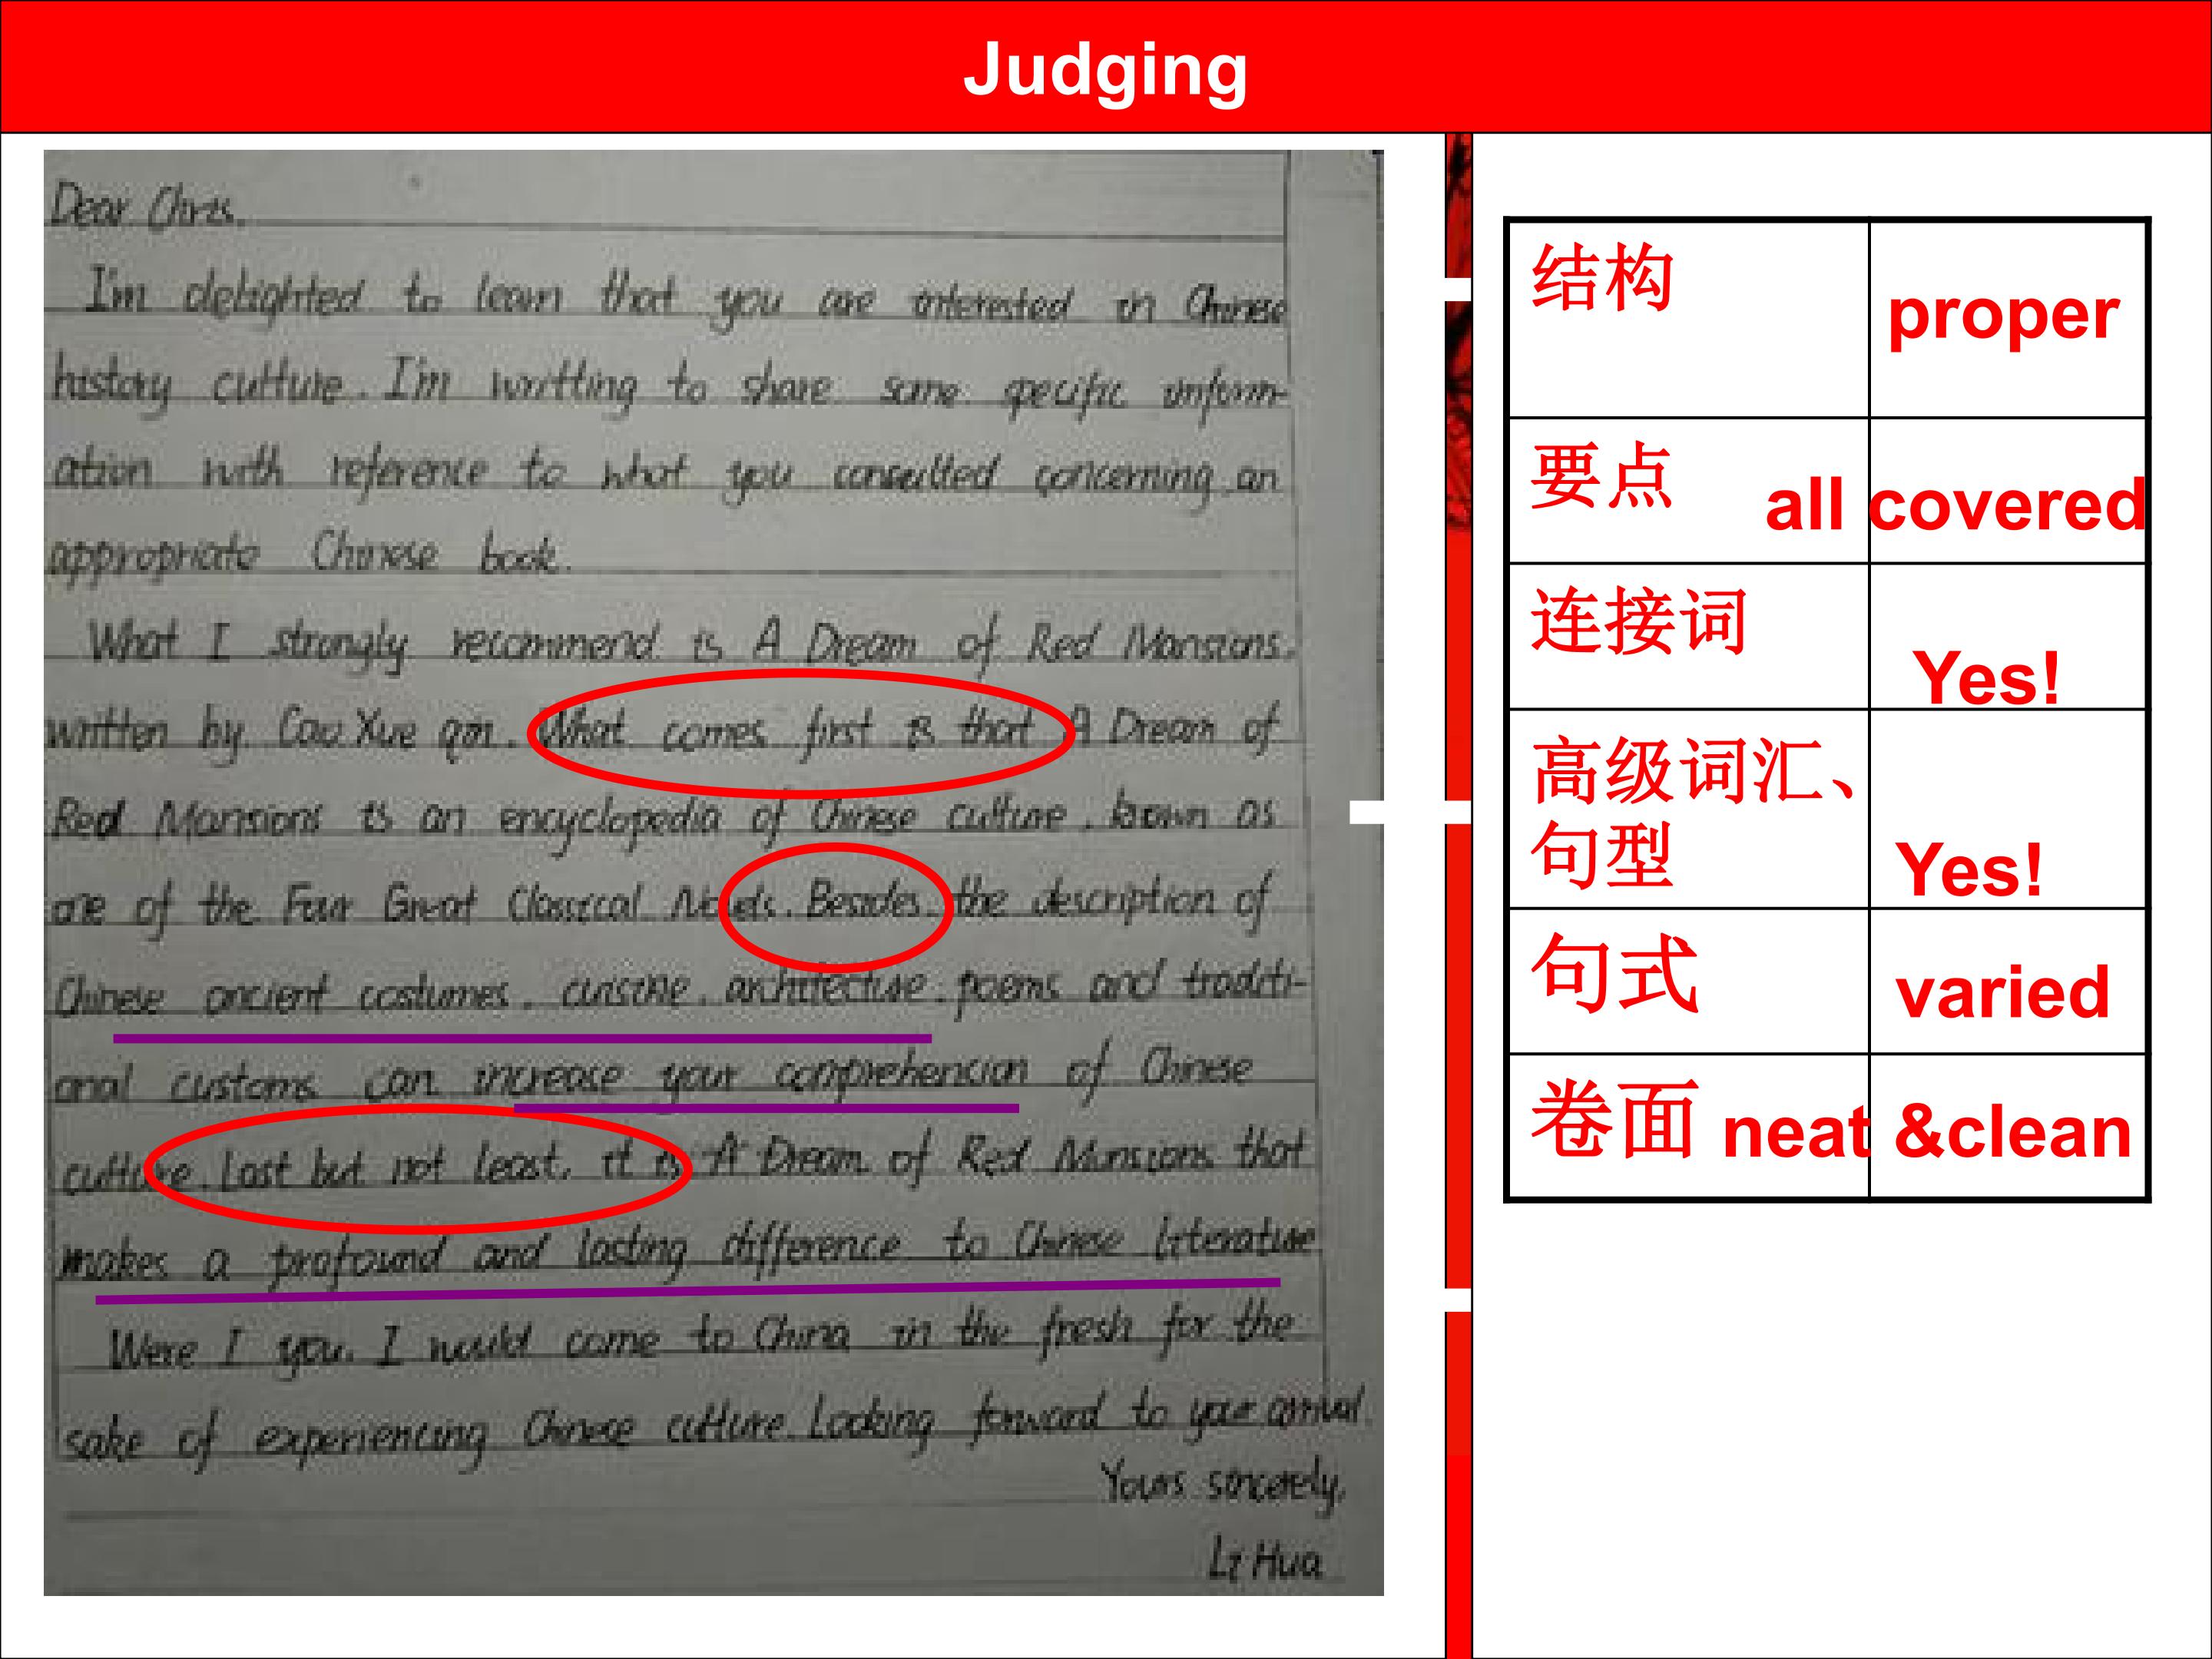 Judging
Dear Chris.
I'm delighted to learn that you are interested in Chinese
history culture. I'm writting to share some specific inform-
ation with reference to what you consulted concerning an
appropriate Chinese book.
What I strongly recommend is A Dream of Red Mansions.
written by Cao Xue qin. What comes first is that A Dream of
Red Mansions is an encyclopedia of Chinese culture, known as
one of the Four Great Classical Novels. Besides, the description of
Chinese ancient costumes, cuisine, architecture, poems and traditi-
onal customs can increase your comprehencion of Chinese
culture. Last but not least, it is A Dream of Red Mansions that
makes a profound and lasting difference to Chinese literature
Were I you, I would come to China in the fresh for the
sake of experiencing Chinese culture. Looking forward to your arrival.
Yours sincerely,
Li Hua
结构 proper
要点 all covered
连接词 Yes!
高级词汇、
句型 Yes!
句式 varied
卷面 neat &clean